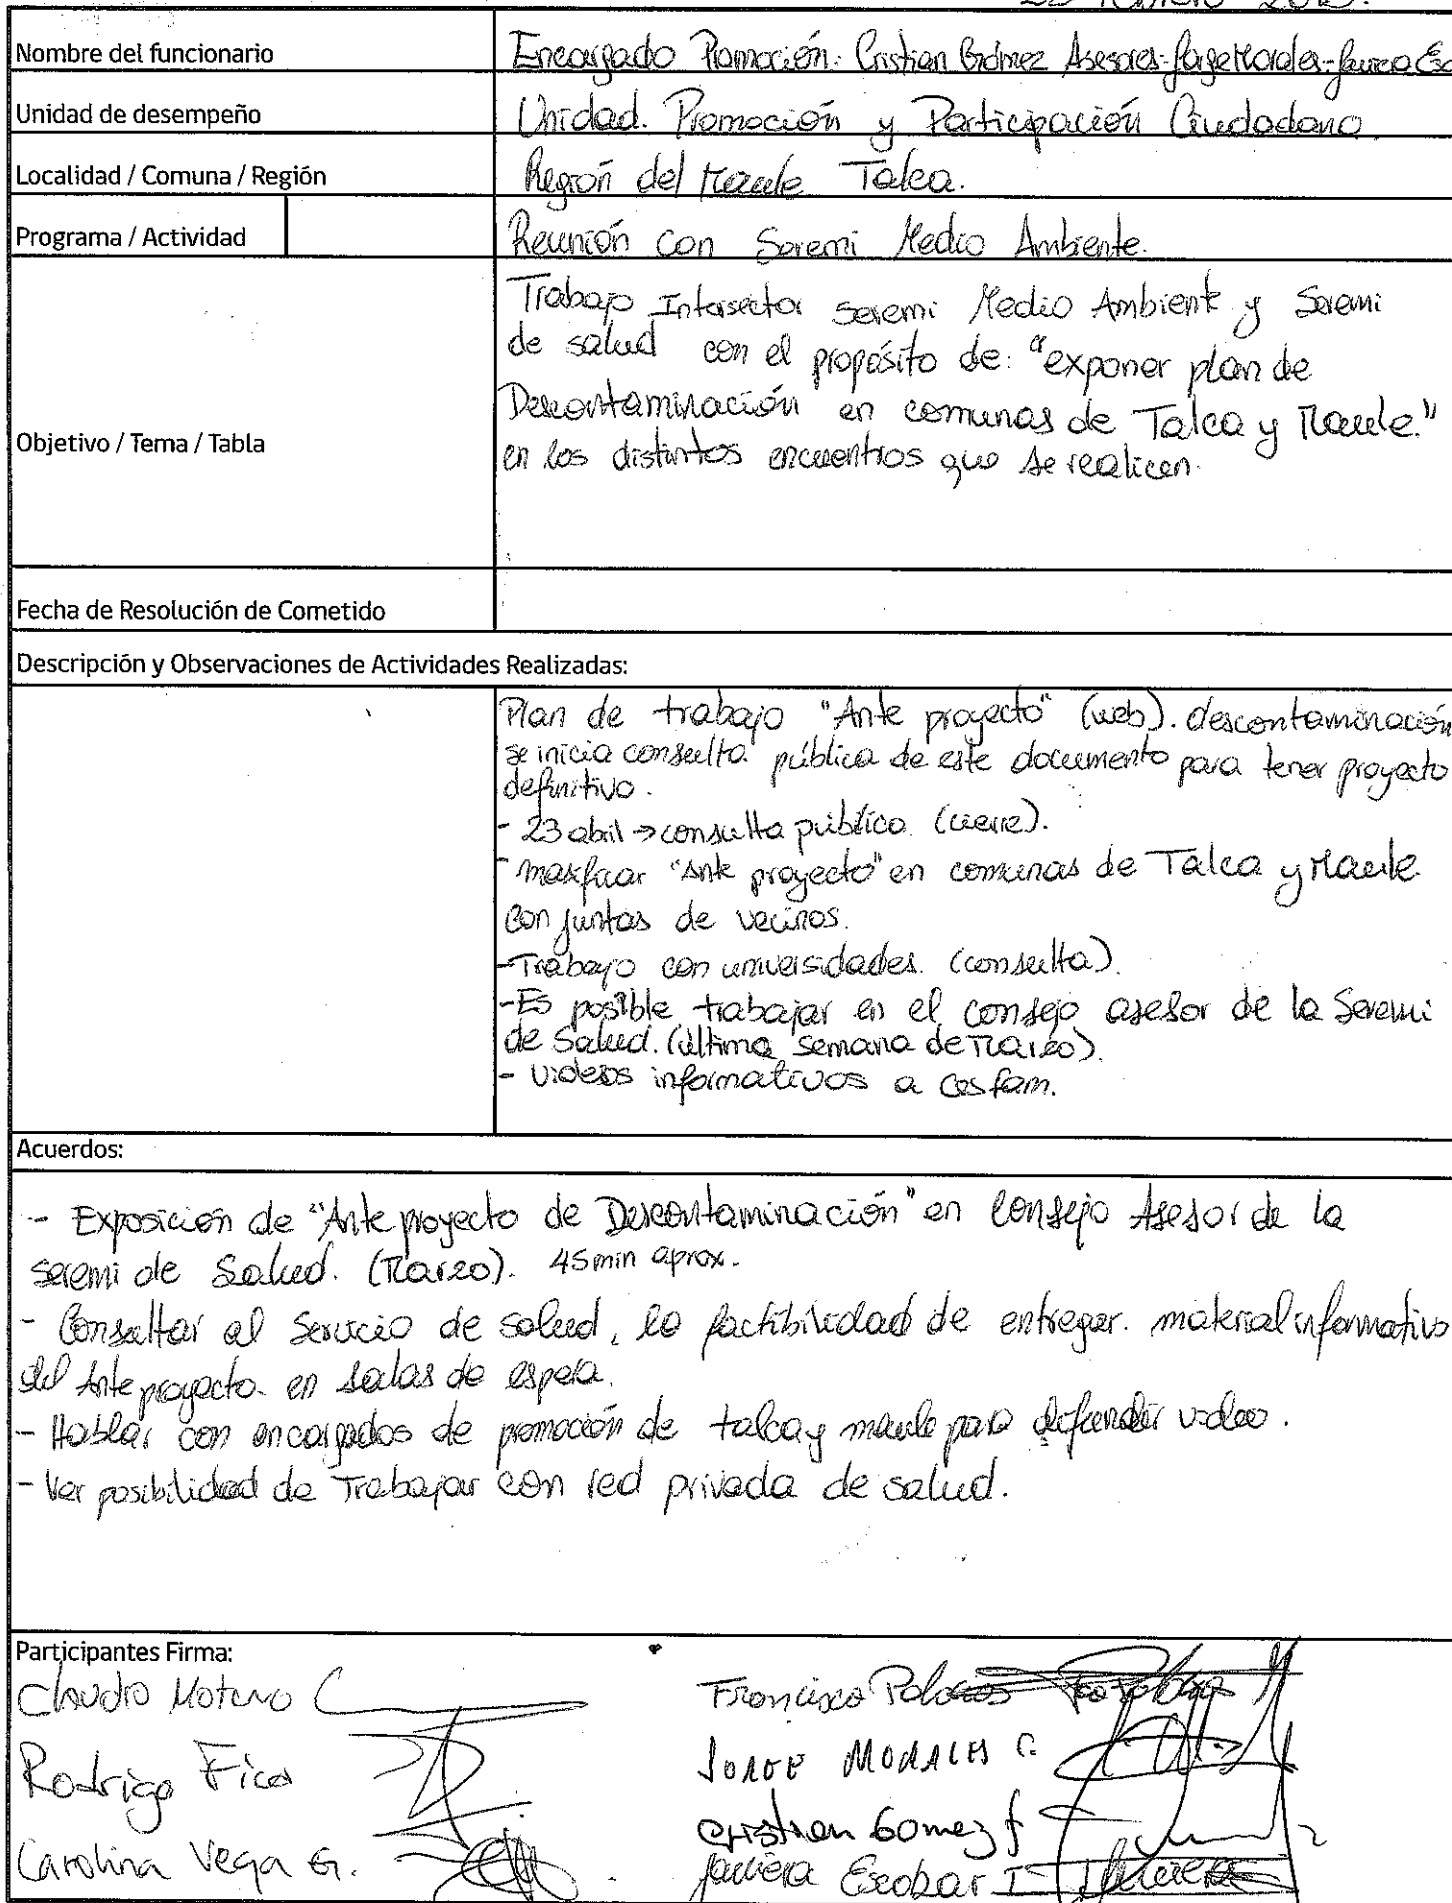 Nombre del funcionario
Encargado Promoción: Cristian Gómez Asesores-Jorge Morales-Javiera Esc
Unidad de desempeño
Unidad. Promoción y Participación Ciudadana
Localidad / Comuna / Región
Región del Maule Talca.
Programa / Actividad
Reunión con Seremi Medio Ambiente.
Objetivo / Tema / Tabla
Trabajo Intersector Seremi Medio Ambiente y Seremi
de salud con el propósito de: "exponer plan de
Descontaminación en comunas de Talca y Maule."
en los distintos encuentros que se realicen.
Fecha de Resolución de Cometido
Descripción y Observaciones de Actividades Realizadas:
Plan de trabajo "Ante proyecto" (web). descontaminación
se inicia consulta pública de este documento para tener proyecto
definitivo.
- 23 abril → consulta pública (cierre).
- "Ante proyecto" en comunas de Talca y Maule
con juntas de vecinos.
- Trabajo con universidades. (consulta).
- Es posible trabajar en el consejo asesor de la Seremi
de Salud. (última semana de Marzo).
- videos informativos a cesfam.
Acuerdos:
- Exposición de "Ante proyecto de Descontaminación" en Consejo Asesor de la
seremi de Salud. (Marzo). 45 min aprox.
- Consultar al Servicio de salud, la factibilidad de entregar. material informativo
del Ante proyecto en salas de espera.
- Hablar con encargados de promoción de talca y maule para difundir video.
- Ver posibilidad de Trabajar con red privada de salud.
Participantes Firma:
Claudio Moreno C
Francisca Palacios
Rodrigo Fica
JORGE MORALES C.
Cristian Gomez f
Carolina Vega G.
Javiera Escobar I